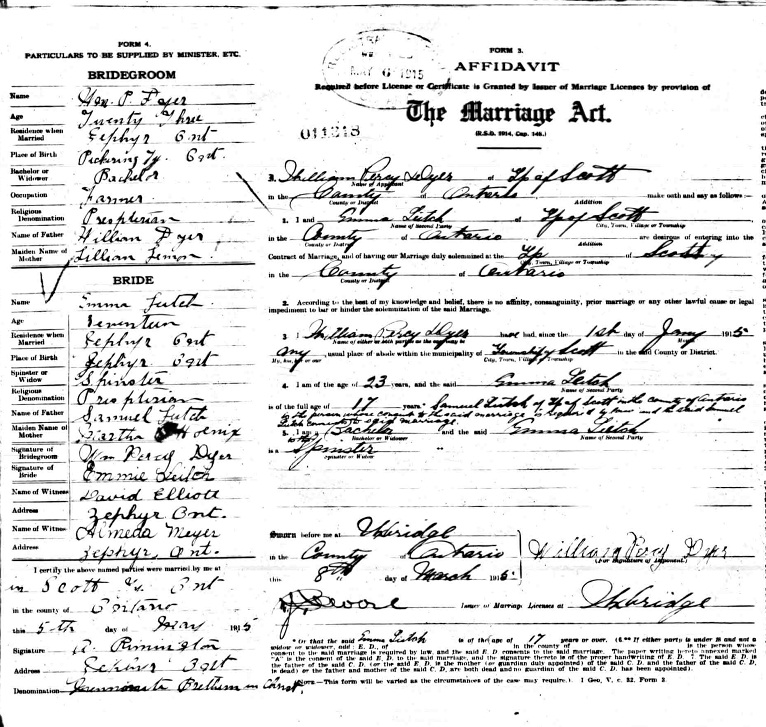 FORM 4.
PARTICULARS TO BE SUPPLIED BY MINISTER, ETC.
BRIDEGROOM
Name Wm. P. Dyer
Age Twenty Three
Residence when Married Zephyr Ont
Place of Birth Pickering Tp. Ont.
Bachelor or Widower Bachelor
Occupation Farmer
Religious Denomination Prespterian
Name of Father William Dyer
Maiden Name of Mother Lillian Lemon
BRIDE
Name Emma Leitch
Age Seventeen
Residence when Married Zephyr Ont
Place of Birth Zephyr Ont
Spinster or Widow Spinster
Religious Denomination Prespterian
Name of Father Samuel Leitch
Maiden Name of Mother Martha Hoenix
Signature of Bridegroom Wm Percy Dyer
Signature of Bride Emmie Leitch
Name of Witness David Elliott
Address Zephyr Ont.
Name of Witness Almeda Meyer
Address Zephyr, Ont.
I certify the above named parties were married by me at
in Scott Tp Ont
in the county of Ontario
this 5th day of May 1915
Signature R. Rimington
Address Ont
Denomination Mennonite Brethren in Christ
MAY 6 1915
011213
FORM 3.
AFFIDAVIT
Required before License or Certificate is Granted by Issuer of Marriage Licenses by provision of
The Marriage Act.
(R.S.O. 1914, Cap. 148.)
I, William Percy Dyer of Tp of Scott
Name of Applicant
in the County of Ontario make oath and say as follows:—
County or District Addition
1. I and Emma Leitch of Tp of Scott
Name of Second Party City, Town, Village or Township
in the County of Ontario are desirous of entering into the
County or District Addition
Contract of Marriage, and of having our Marriage duly solemnized at the Tp of Scott
City, Town, Village or Township
in the County of Ontario
County or District
2. According to the best of my knowledge and belief, there is no affinity, consanguinity, prior marriage or any other lawful cause or legal
impediment to bar or hinder the solemnization of the said Marriage.
3. I William Percy Dyer have had, since the 1st day of Jany 1915
Name of either or both parties as the case may be
my usual place of abode within the municipality of Township of Scott in the said County or District.
My, his, her or our City, Town, Village or Township
4. I am of the age of 23 years, and the said Emma Leitch
Name of Second Party
is of the full age of 17 years. Samuel Leitch of Tp of Scott in the county of Ontario
is the person whose consent to the said marriage is required by law and the said Samuel
Leitch consents to said marriage.
5. I am a Bachelor and the said Emma Leitch
Bachelor or Widower Name of Second Party
is a Spinster
Spinster or Widow
Sworn before me at Uxbridge
in the County of Ontario
this 8th day of March 1915
William Percy Dyer
(or Signature of Deponent)
Issuer of Marriage Licenses at Uxbridge
*Or that the said Emma Leitch is of the age of 17 years or over. (6 ** If either party is under 18 and not a
widow or widower, add: E. D., of in the county of is the person whose
consent to the said marriage is required by law, and the said E. D. consents to the said marriage. The paper writing hereto annexed marked
"A" is the consent of the said E. D. to the said marriage, and the signature thereto is of the proper handwriting of E. D. 7 The said E. D. is
the father of the said C. D. (or the said E. D. is the mother (or guardian duly appointed) of the said C. D. and the father of the said C. D.
is dead) (or the father and mother of the said C. D. are both dead and no guardian of the said C. D. has been appointed).
NOTE—This form will be varied as the circumstances of the case may require. 1 Geo. V, c. 32. Form 3.